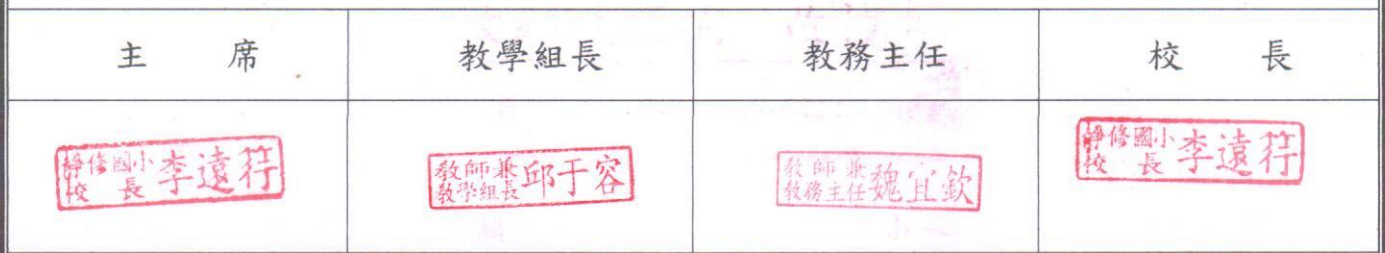 主 席 教學組長 教務主任 校 長
靜修國小 校長 李遠符
教師兼 教學組長 邱于容
教師兼 教務主任 魏宜欽
靜修國小 校長 李遠符